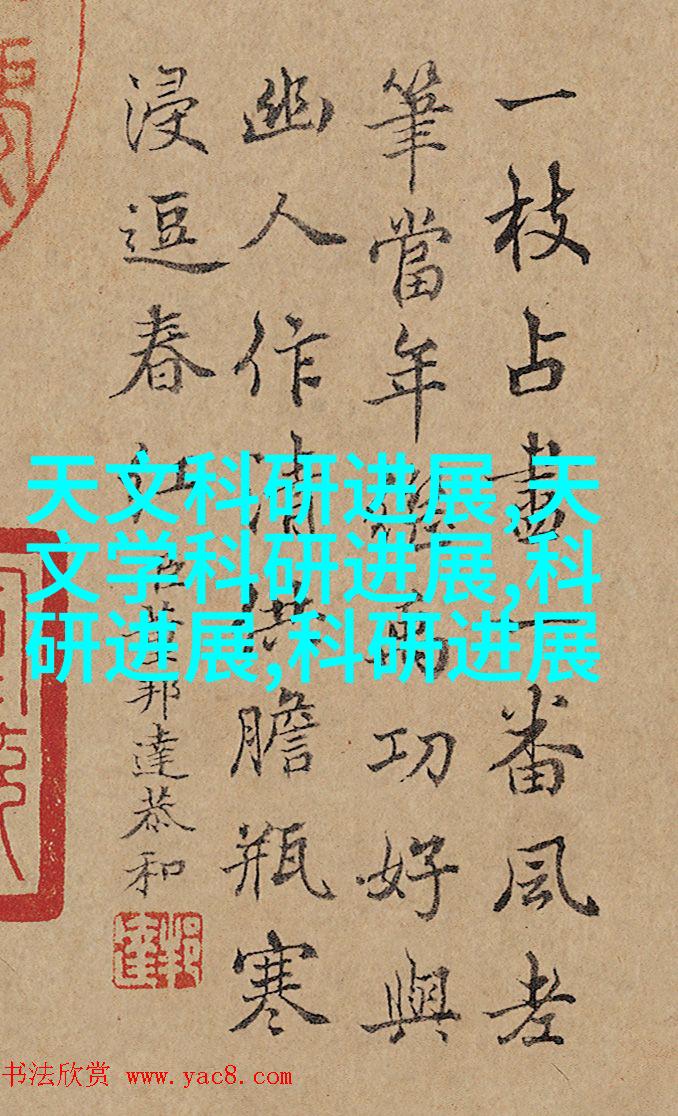 一枝占盡一番風老
筆當年為功好與
幽人作清供膽瓶寒
浸逗春紅臣董邦達恭和
邦達
天文科研进展,天
文学科研进展,科
研进展,科研进展
书法欣赏 www.yac8.com